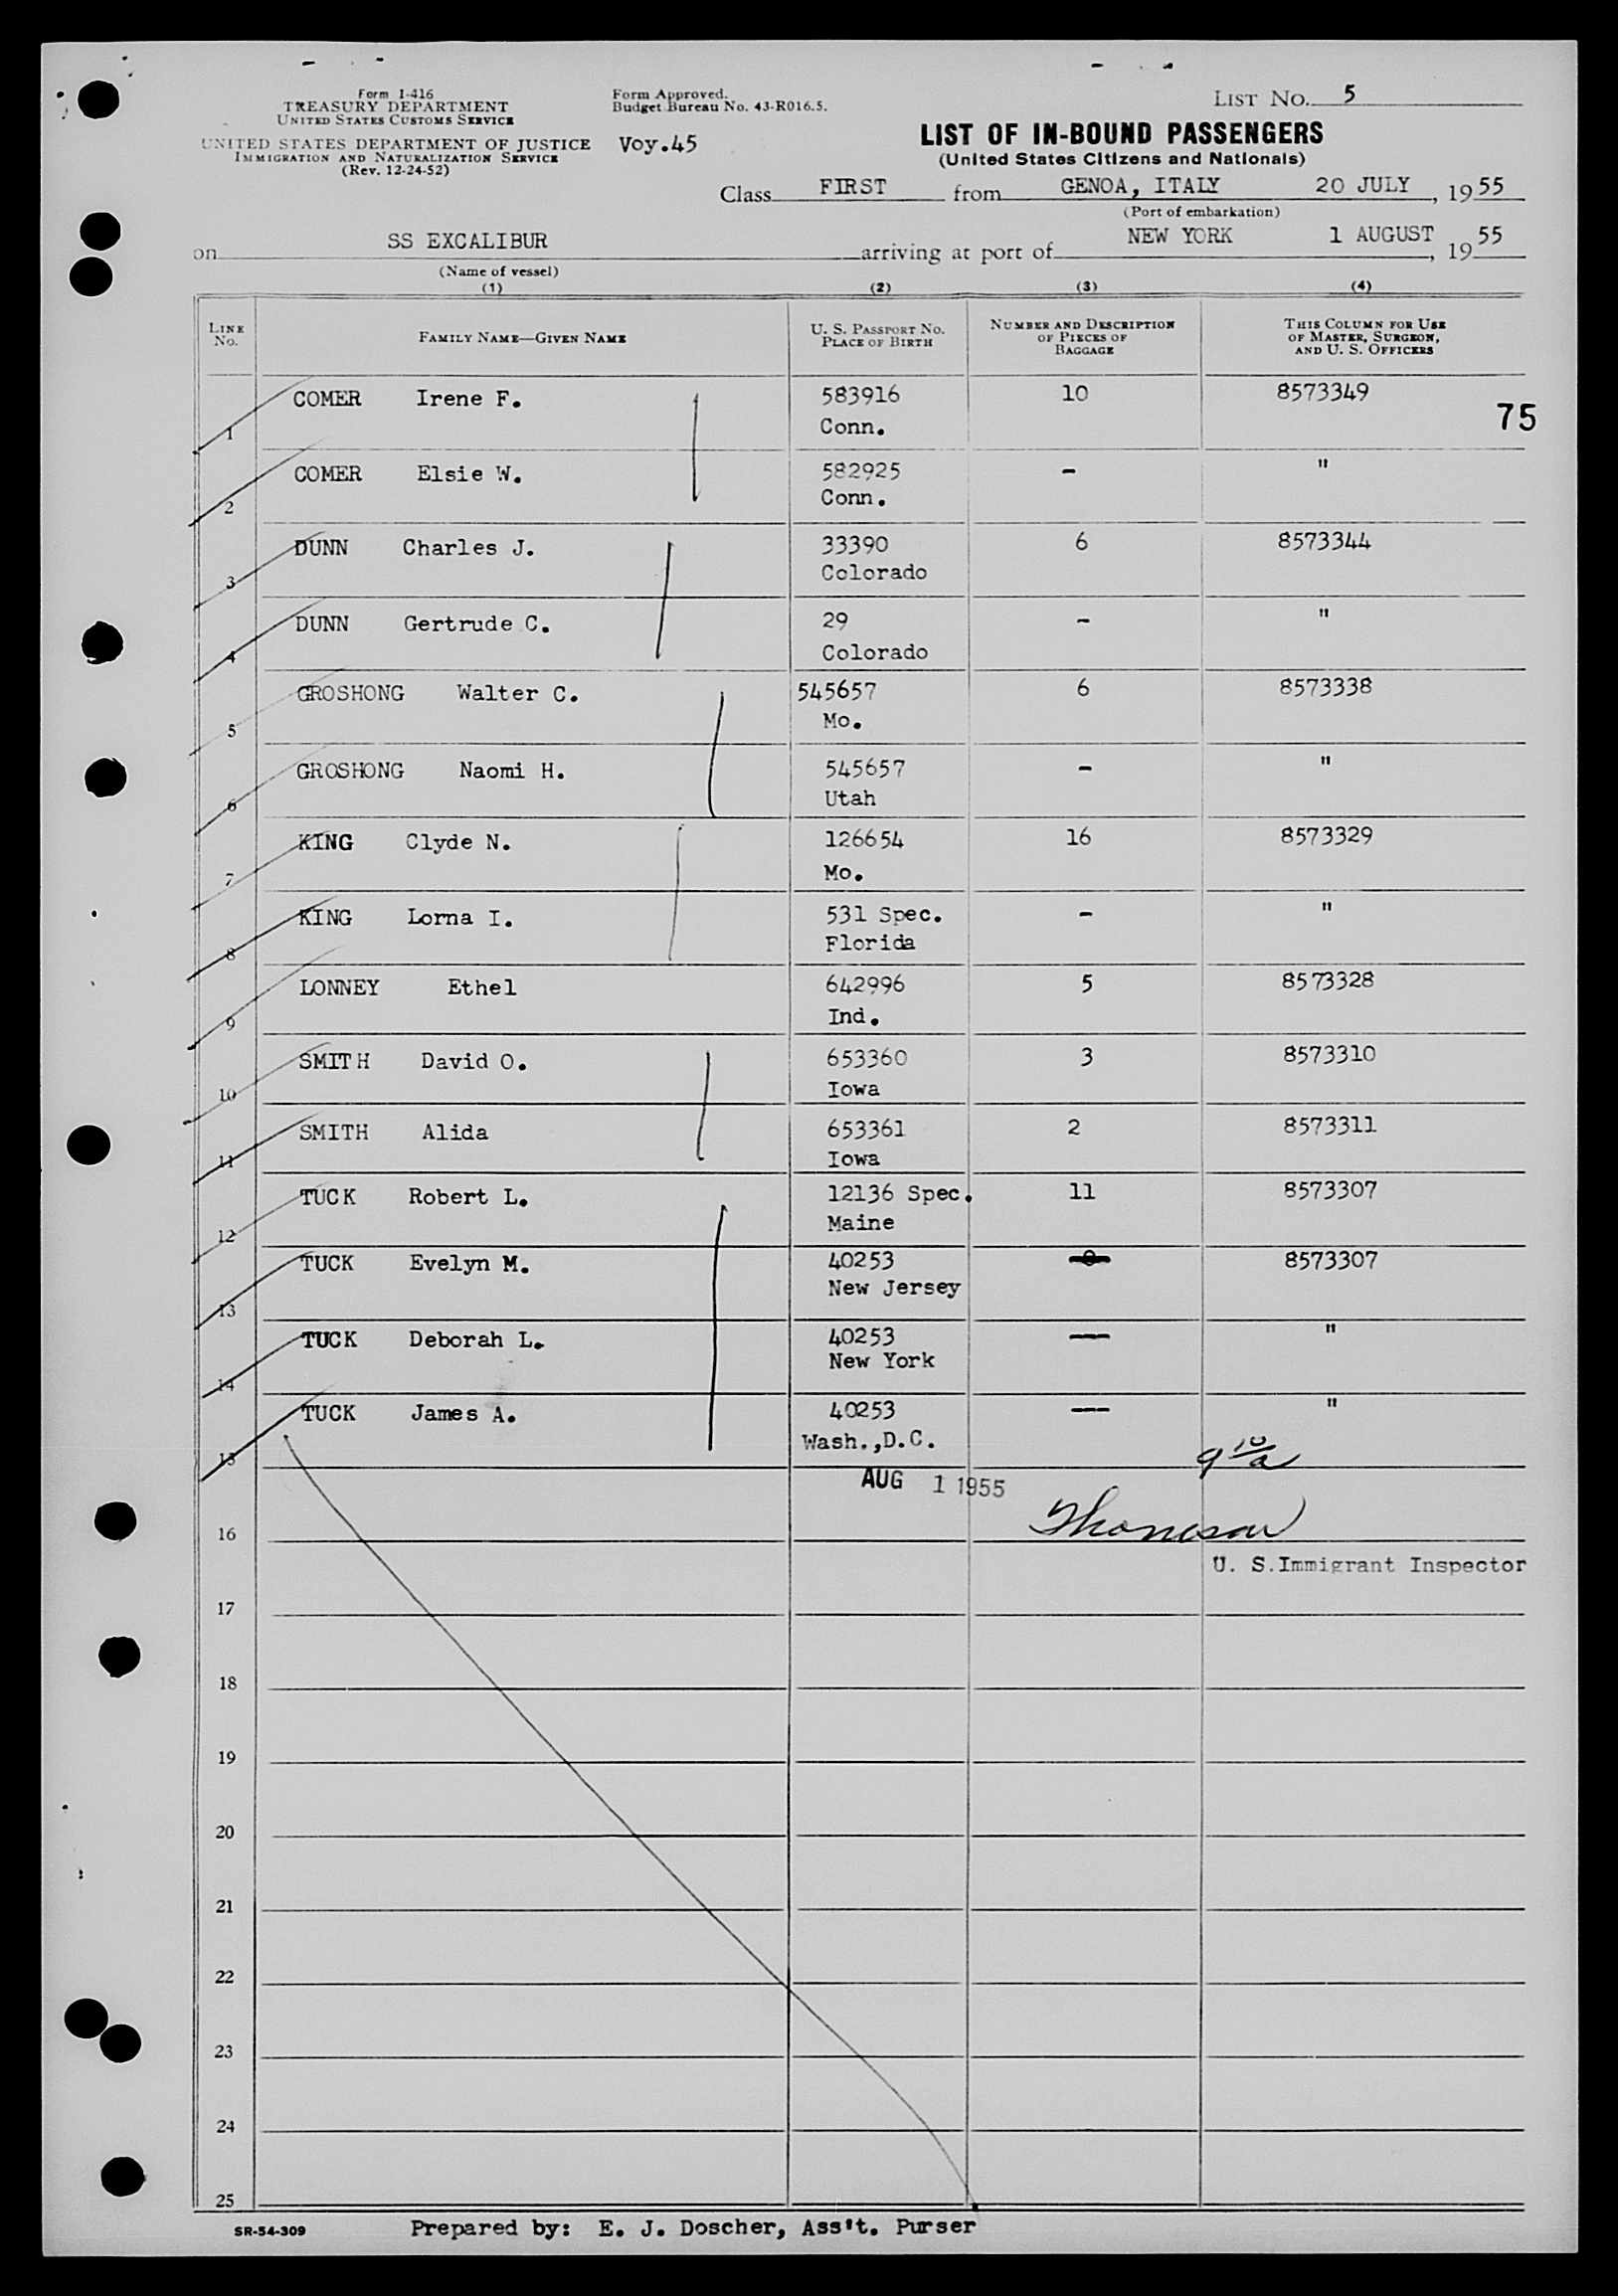 Form I-416
TREASURY DEPARTMENT
UNITED STATES CUSTOMS SERVICE
UNITED STATES DEPARTMENT OF JUSTICE
IMMIGRATION AND NATURALIZATION SERVICE
(Rev. 12-24-52)
Form Approved.
Budget Bureau No. 43-R016.5.
Voy.45
LIST No. 5
LIST OF IN-BOUND PASSENGERS
(United States Citizens and Nationals)
Class FIRST from GENOA, ITALY 20 JULY, 1955
(Port of embarkation)
on SS EXCALIBUR arriving at port of NEW YORK 1 AUGUST, 1955
(Name of vessel)
(1) (2) (3) (4)
LINE No. FAMILY NAME—GIVEN NAME U. S. PASSPORT NO. PLACE OF BIRTH NUMBER AND DESCRIPTION OF PIECES OF BAGGAGE THIS COLUMN FOR USE OF MASTER, SURGEON, AND U. S. OFFICERS
1 COMER Irene F. 583916 10 8573349
Conn.
75
2 COMER Elsie W. 582925 - "
Conn.
3 DUNN Charles J. 33390 6 8573344
Colorado
4 DUNN Gertrude C. 29 - "
Colorado
5 GROSHONG Walter C. 545657 6 8573338
Mo.
6 GROSHONG Naomi H. 545657 - "
Utah
7 KING Clyde N. 126654 16 8573329
Mo.
8 KING Lorna I. 531 Spec. - "
Florida
9 LONNEY Ethel 642996 5 8573328
Ind.
10 SMITH David O. 653360 3 8573310
Iowa
11 SMITH Alida 653361 2 8573311
Iowa
12 TUCK Robert L. 12136 Spec. 11 8573307
Maine
13 TUCK Evelyn M. 40253 8573307
New Jersey
14 TUCK Deborah L. 40253 --- "
New York
15 TUCK James A. 40253 --- "
Wash.,D.C.
9 10/a
AUG 1 1955
16 Thompson
U. S. Immigrant Inspector
17
18
19
20
21
22
23
24
25
SR-54-309
Prepared by: E. J. Doscher, Ass't. Purser